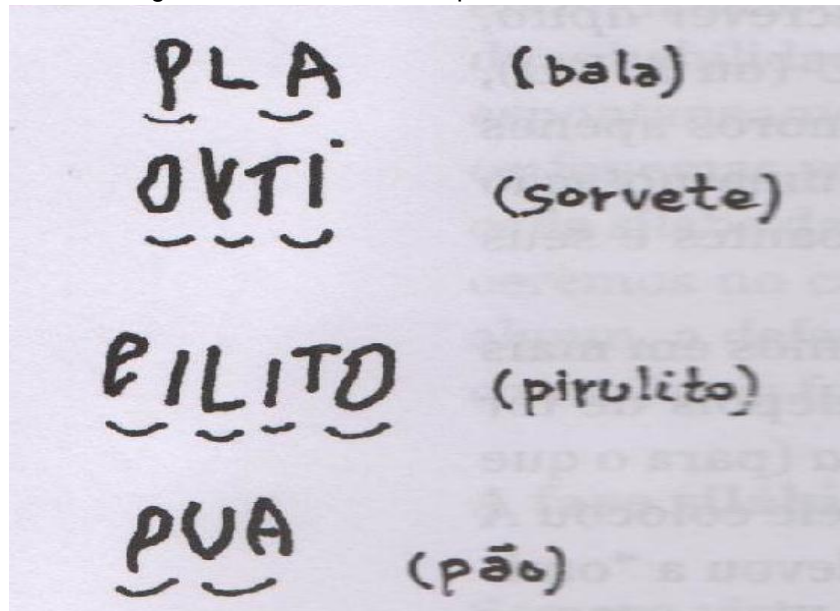 PLA (bala)
OVTI (sorvete)
PILITO (pirulito)
PUA (pão)